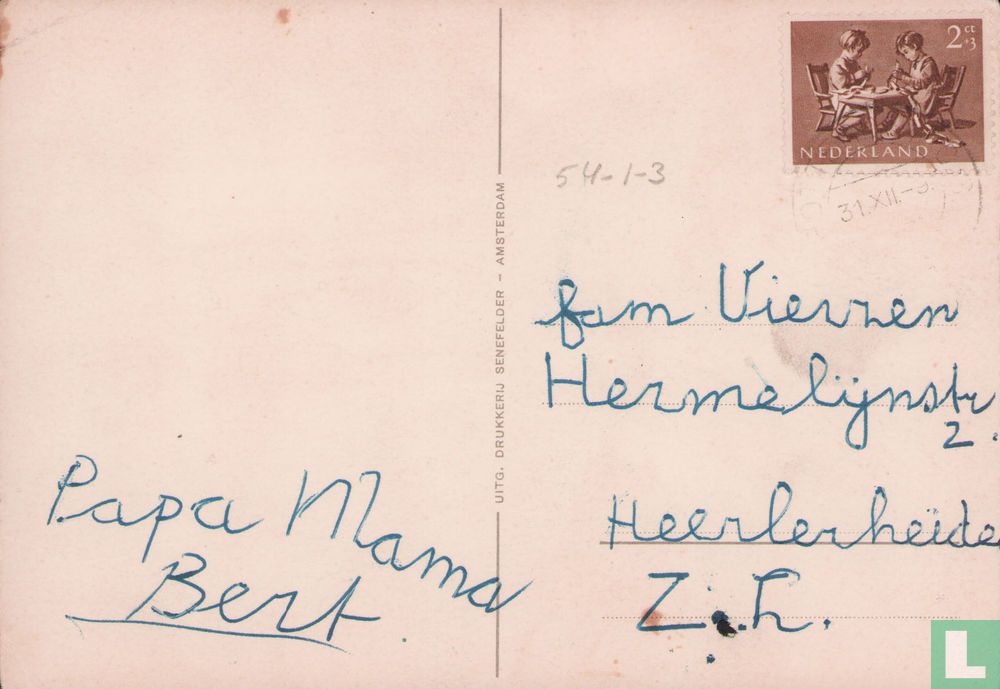 2 ct
+3
NEDERLAND
31.XII
54-1-3
UITG. DRUKKERIJ SENEFELDER - AMSTERDAM
fam Vierzen
Hermelijnstr
2.
Heerlerheide
Z.L.
Papa Mama
Bert.
L